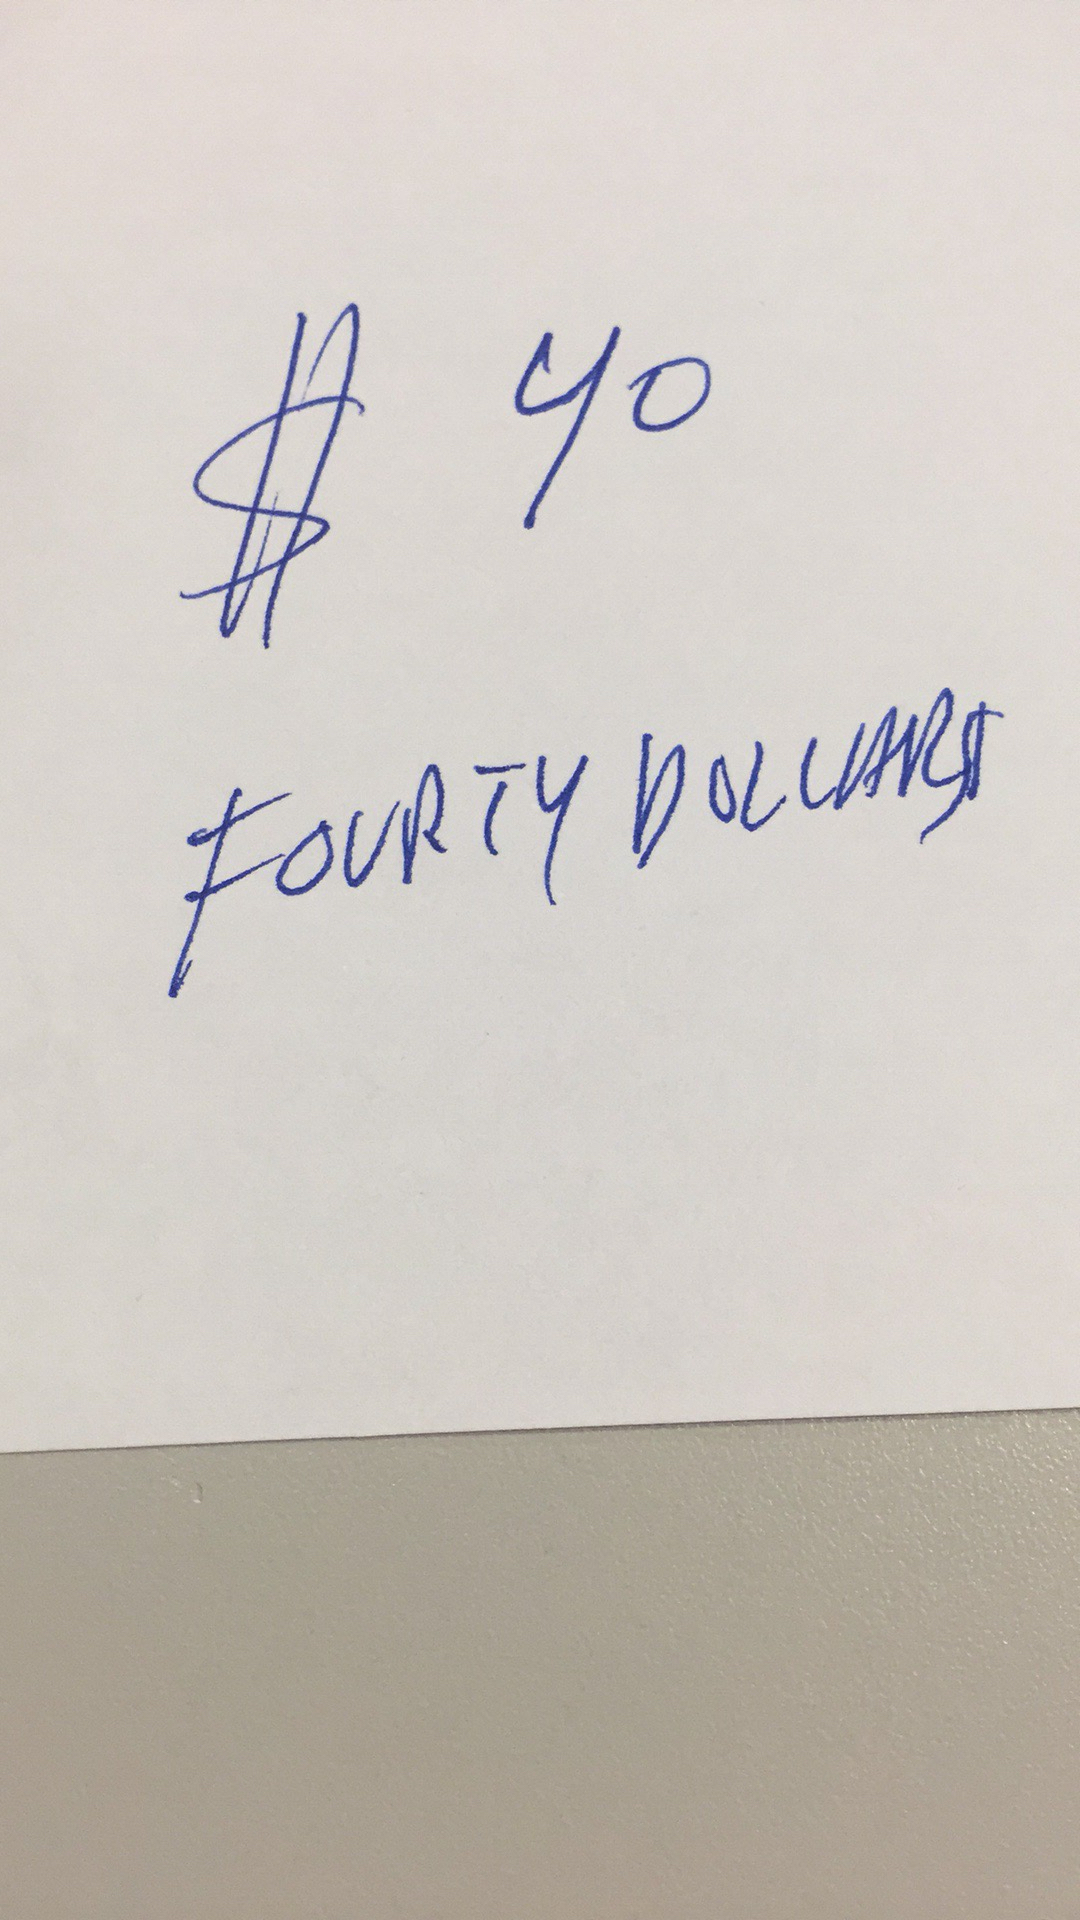 $ 40
FOURTY DOLLARS